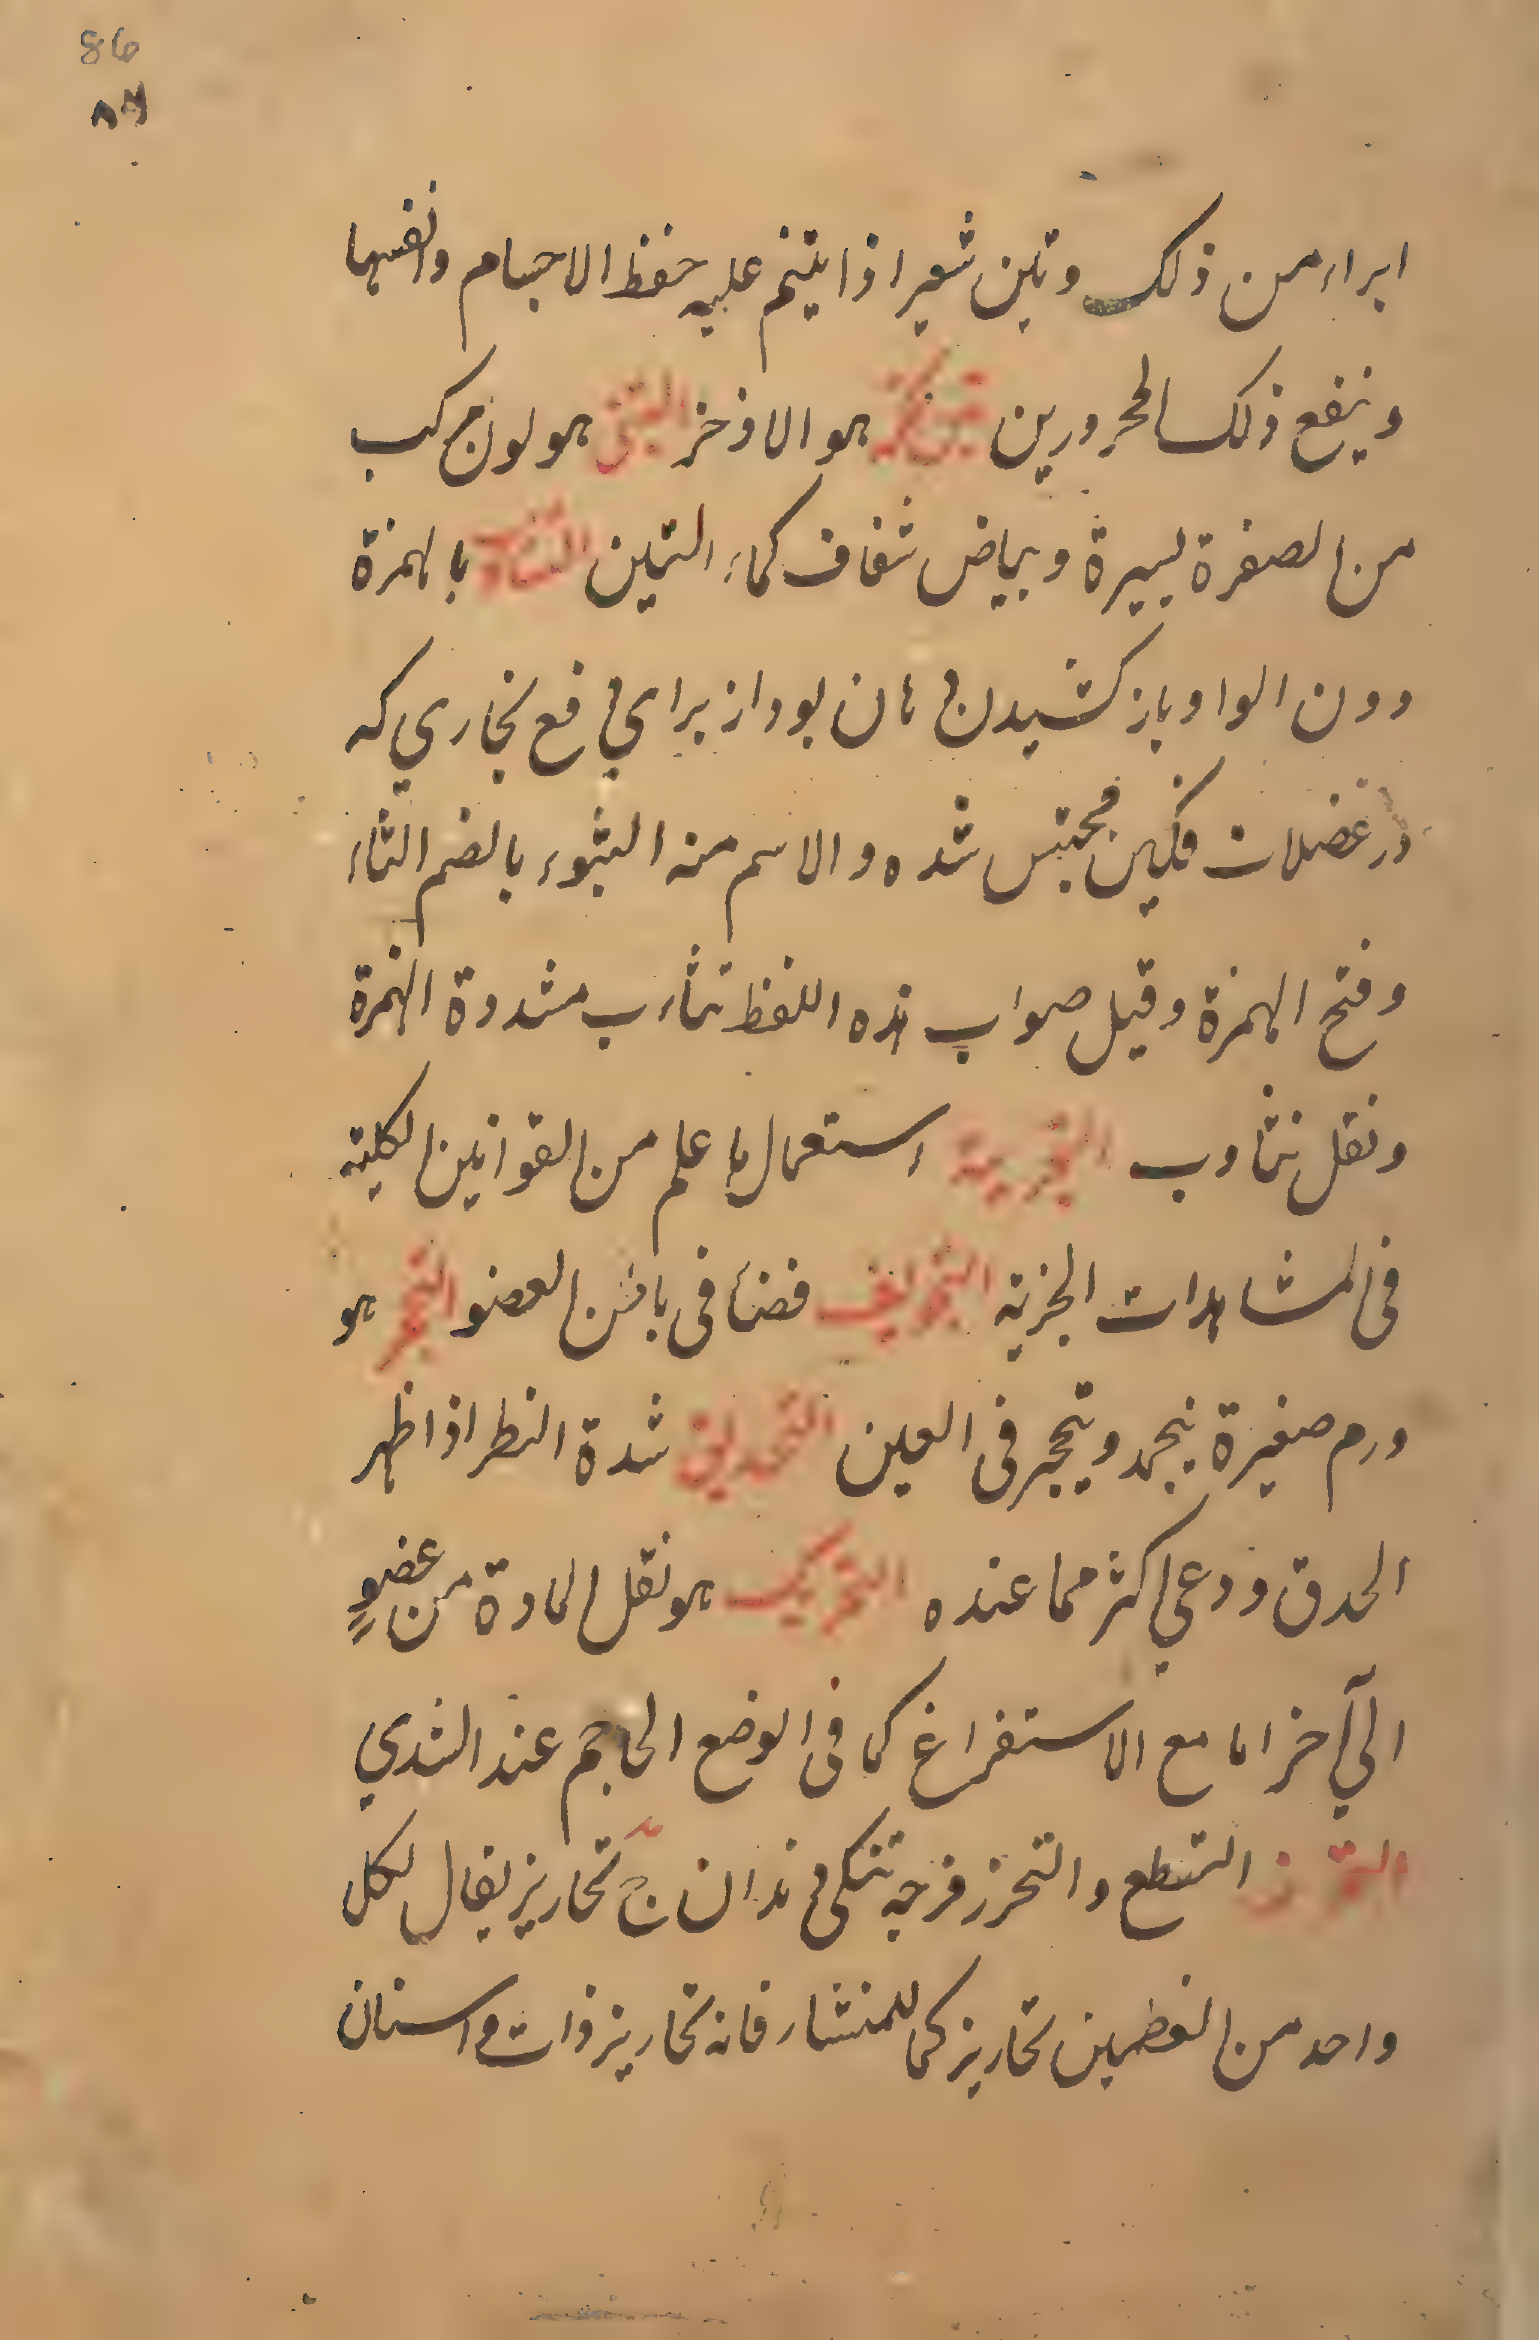 86
٨٦
ابراء من ذلك وتبن شعير اذا ينيم عليه حفظ الاجسام وانفسها
وينفع ذلك المحرورين تبن مكة هو الاذخر التبنى هو لون مركب
من الصفرة يسيرة وبياض شفاف كماء التبن التثاؤب بالهمزة
دون الواو باز كشيدن دهان بود از براي دفع بخاري كه
در عضلات فكين محتبس شده والاسم منه الثوباء بالضم الثاء
وفتح الهمزة وقيل صواب هذه اللفظ تثاءب مشددة الهمزة
ونقل تثاوب التجربة استعمال ما علم من القوانين الكلية
فى المشاهدات الجزية التجويف فضاء فى باطن العضو التحجر هو
ورم صغيرة ينجمد ويتحجر فى العين التحديق شدة النظر اذا ظهر
الحدق ودعي اكثر مما عنده التحريك هو نقل المادة من عضوٍ
الي آخر اما مع الاستفراغ كما فى الوضع المحاجم عند الثدي
التحزز التقطع والتحزز فرجه تنكى دندان ج تحاريز يقال لكل
واحد من العظمين تحاريز كما للمنشار فانه تحاريز ذات واسنان